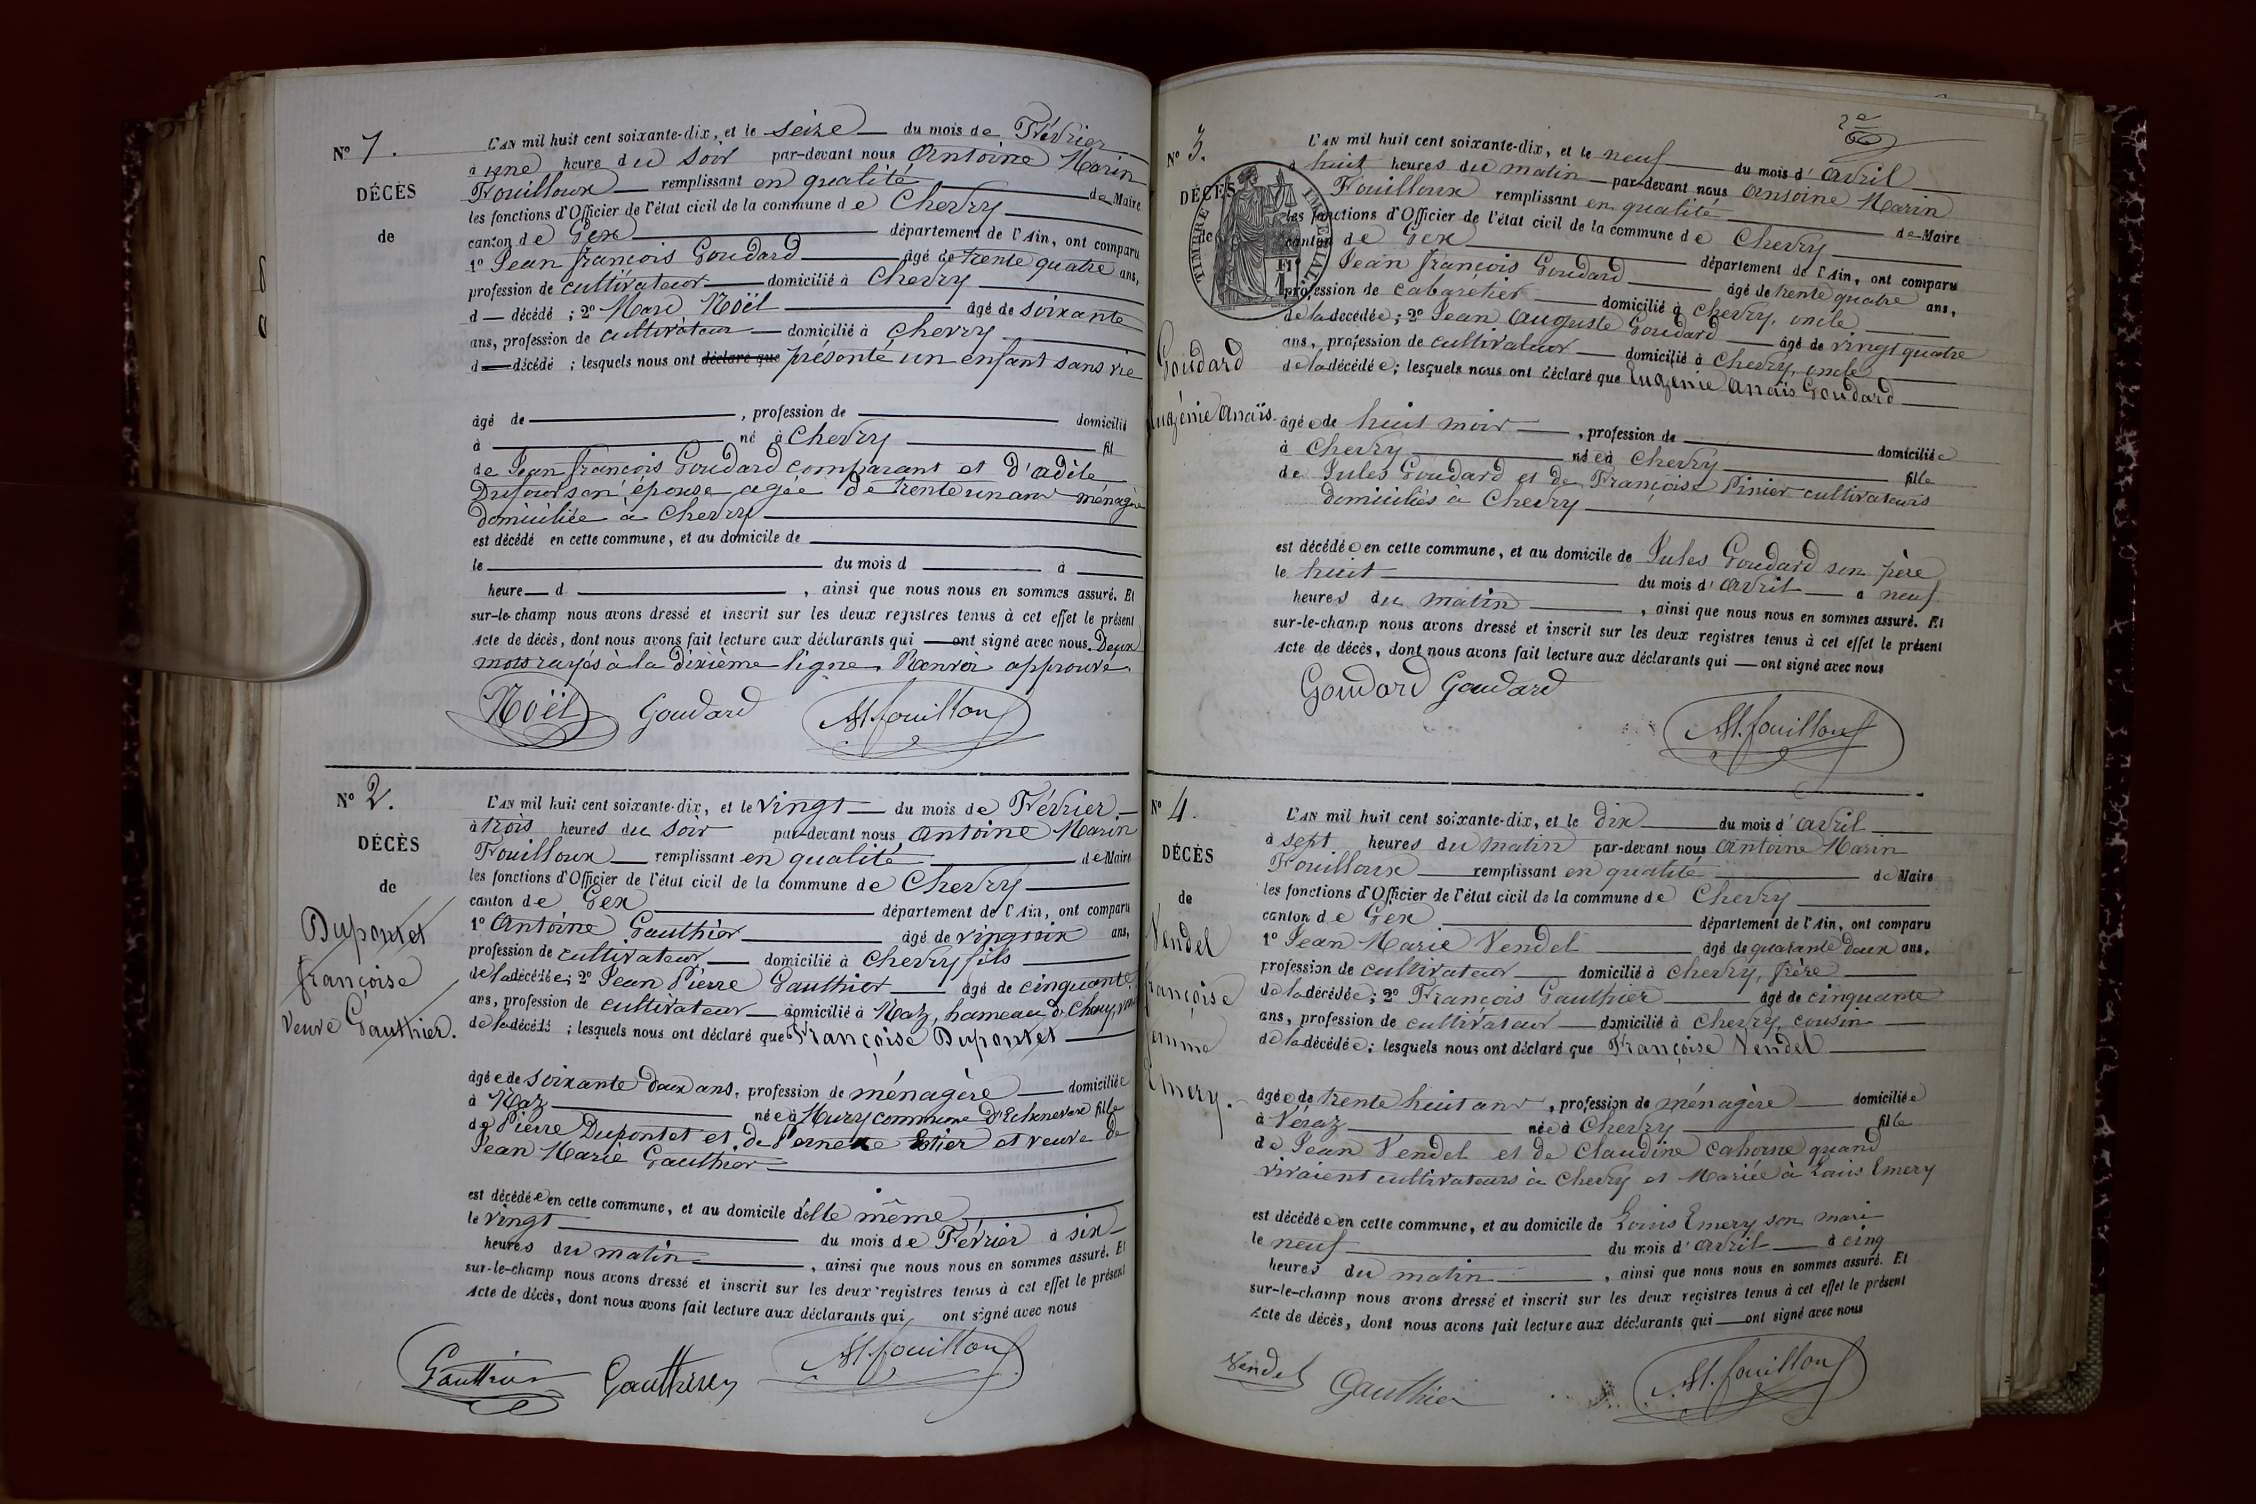 N° 1.
DÉCÈS
de
L'AN mil huit cent soixante-dix, et le seize du mois de Février
à une heure du soir par-devant nous Antoine Marin
Fouilloux remplissant en qualité de Maire
les fonctions d'Officier de l'état civil de la commune de Chevry
canton de Gex département de l'Ain, ont comparu
1° Jean françois Goudard âgé de trente quatre ans,
profession de cultivateur domicilié à Chevry
d décédé ; 2° Marc Noël âgé de soixante
ans, profession de cultivateur domicilié à Chevry
d décédé ; lesquels nous ont déclaré que présenté un enfant sans vie
âgé de , profession de domicilié
à né à Chevry fil
de Jean françois Goudard comparant et d'adèle
Dufour son épouse agée de trente un ans ménagère
domiciliée à Chevry
est décédé en cette commune, et au domicile de
le du mois d à
heure d , ainsi que nous nous en sommes assuré. Et
sur-le-champ nous avons dressé et inscrit sur les deux registres tenus à cet effet le présent
Acte de décès, dont nous avons fait lecture aux déclarants qui ont signé avec nous. Deux
mots rayés à la dixième ligne. Renvoi approuvé.
Noël Goudard AM. fouilloux
N° 2.
DÉCÈS
de
Dupontet
françoise
veuve Gauthier.
L'AN mil huit cent soixante-dix, et le vingt du mois de Février
à trois heures du soir par-devant nous Antoine Marin
Fouilloux remplissant en qualité de Maire
les fonctions d'Officier de l'état civil de la commune de Chevry
canton de Gex département de l'Ain, ont comparu
1° Antoine Gauthier âgé de vingt six ans,
profession de cultivateur domicilié à Chevry fils
de la décédée; 2° Jean Pierre Gauthier âgé de cinquante
ans, profession de cultivateur domicilié à Naz, hameau de
de la décédé ; lesquels nous ont déclaré que Françoise Dupontet
âgée de soixante deux ans, profession de ménagère domiciliée
à Naz née à Mury commune D'Echenevex fille
de Pierre Dupontet et de Pernette et veuve de
Jean Marie Gauthier
est décédée en cette commune, et au domicile d'elle même
le vingt du mois de Février à six
heures du matin , ainsi que nous nous en sommes assuré. Et
sur-le-champ nous avons dressé et inscrit sur les deux registres tenus à cet effet le présent
Acte de décès, dont nous avons fait lecture aux déclarants qui ont signé avec nous
Gauthier Gauthier AM. fouilloux
2e
N° 3.
DÉCÈS
de
TIMBRE IMPÉRIAL
Goudard
Eugénie Anaïs.
L'AN mil huit cent soixante-dix, et le neuf du mois d'avril
à huit heures du matin par-devant nous Antoine Marin
Fouilloux remplissant en qualité de Maire
les fonctions d'Officier de l'état civil de la commune de Chevry
canton de Gex département de l'Ain, ont comparu
Jean françois Goudard âgé de trente quatre ans,
profession de cabaretier domicilié à Chevry, oncle
de la décédée; 2° Jean Auguste Goudard âgé de vingt quatre
ans, profession de cultivateur domicilié à Chevry, oncle
de la décédée; lesquels nous ont déclaré que Eugénie Anaïs Goudard
âgée de huit mois , profession de domiciliée
à Chevry née à Chevry fille
de Jules Goudard et de Françoise Pinier cultivateurs
domiciliés à Chevry
est décédée en cette commune, et au domicile de Jules Goudard son père
le huit du mois d'avril à neuf
heures du matin , ainsi que nous nous en sommes assuré. Et
sur-le-champ nous avons dressé et inscrit sur les deux registres tenus à cet effet le présent
Acte de décès, dont nous avons fait lecture aux déclarants qui ont signé avec nous
Goudard Goudard
AM. fouilloux
N° 4.
DÉCÈS
de
Vendel
françoise
femme
Emery.
L'AN mil huit cent soixante-dix, et le dix du mois d'avril
à sept heures du matin par-devant nous Antoine Marin
Fouilloux remplissant en qualité de Maire
les fonctions d'Officier de l'état civil de la commune de Chevry
canton de Gex département de l'Ain, ont comparu
1° Jean Marie Vendel âgé de quarante deux ans,
profession de cultivateur domicilié à Chevry, frère
de la décédée; 2° François Gauthier âgé de cinquante
ans, profession de cultivateur domicilié à Chevry, cousin
de la décédée; lesquels nous ont déclaré que Françoise Vendel
âgée de trente huit ans , profession de ménagère domiciliée
à Véraz née à Chevry fille
de Jean Vendel et de Claudine cahorne quand
vivaient cultivateurs à Chevry et Mariée à Louis Emery
est décédée en cette commune, et au domicile de Louis Emery son mari
le neuf du mois d'avril à cinq
heures du matin , ainsi que nous nous en sommes assuré. Et
sur-le-champ nous avons dressé et inscrit sur les deux registres tenus à cet effet le présent
Acte de décès, dont nous avons fait lecture aux déclarants qui ont signé avec nous
Vendel Gauthier AM. fouilloux